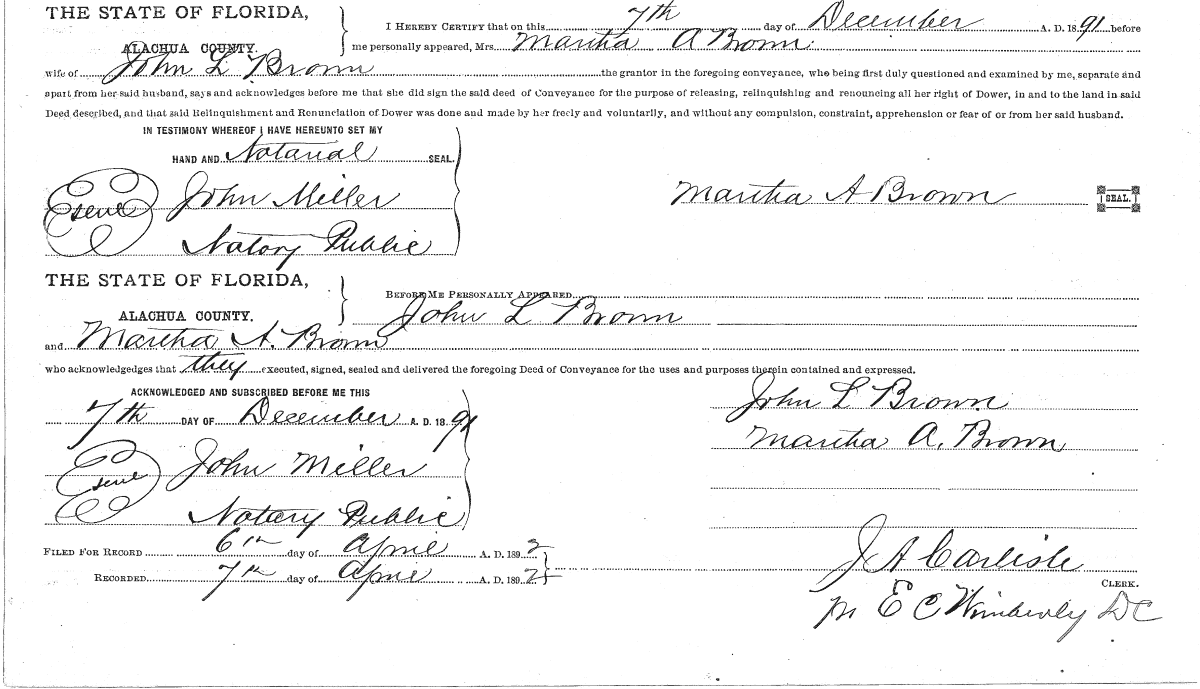 THE STATE OF FLORIDA,
I HEREBY CERTIFY that on this 7th day of December A. D. 1891 before
ALACHUA COUNTY.
me personally appeared, Mrs. Martha A Brown
wife of John L Brown the grantor in the foregoing conveyance, who being first duly questioned and examined by me, separate and
apart from her said husband, says and acknowledges before me that she did sign the said deed of Conveyance for the purpose of releasing, relinquishing and renouncing all her right of Dower, in and to the land in said
Deed described, and that said Relinquishment and Renunciation of Dower was done and made by her freely and voluntarily, and without any compulsion, constraint, apprehension or fear of or from her said husband.
IN TESTIMONY WHEREOF I HAVE HEREUNTO SET MY
HAND AND Notarial SEAL.
John Miller
Martha A Brown SEAL.
Notory Public
THE STATE OF FLORIDA,
BEFORE ME PERSONALLY APPEARED
ALACHUA COUNTY.
John L Brown
and Martha A. Brown
who acknowledgedges that they executed, signed, sealed and delivered the foregoing Deed of Conveyance for the uses and purposes therein contained and expressed.
ACKNOWLEDGED AND SUBSCRIBED BEFORE ME THIS
7th DAY OF December A. D. 1891
John L Brown
Martha A. Brown
John Miller
Notary Public
FILED FOR RECORD 6th day of April A. D. 1892
RECORDED 7th day of April A. D. 1892
J A Carlisle
CLERK.
E C Wimberly DC